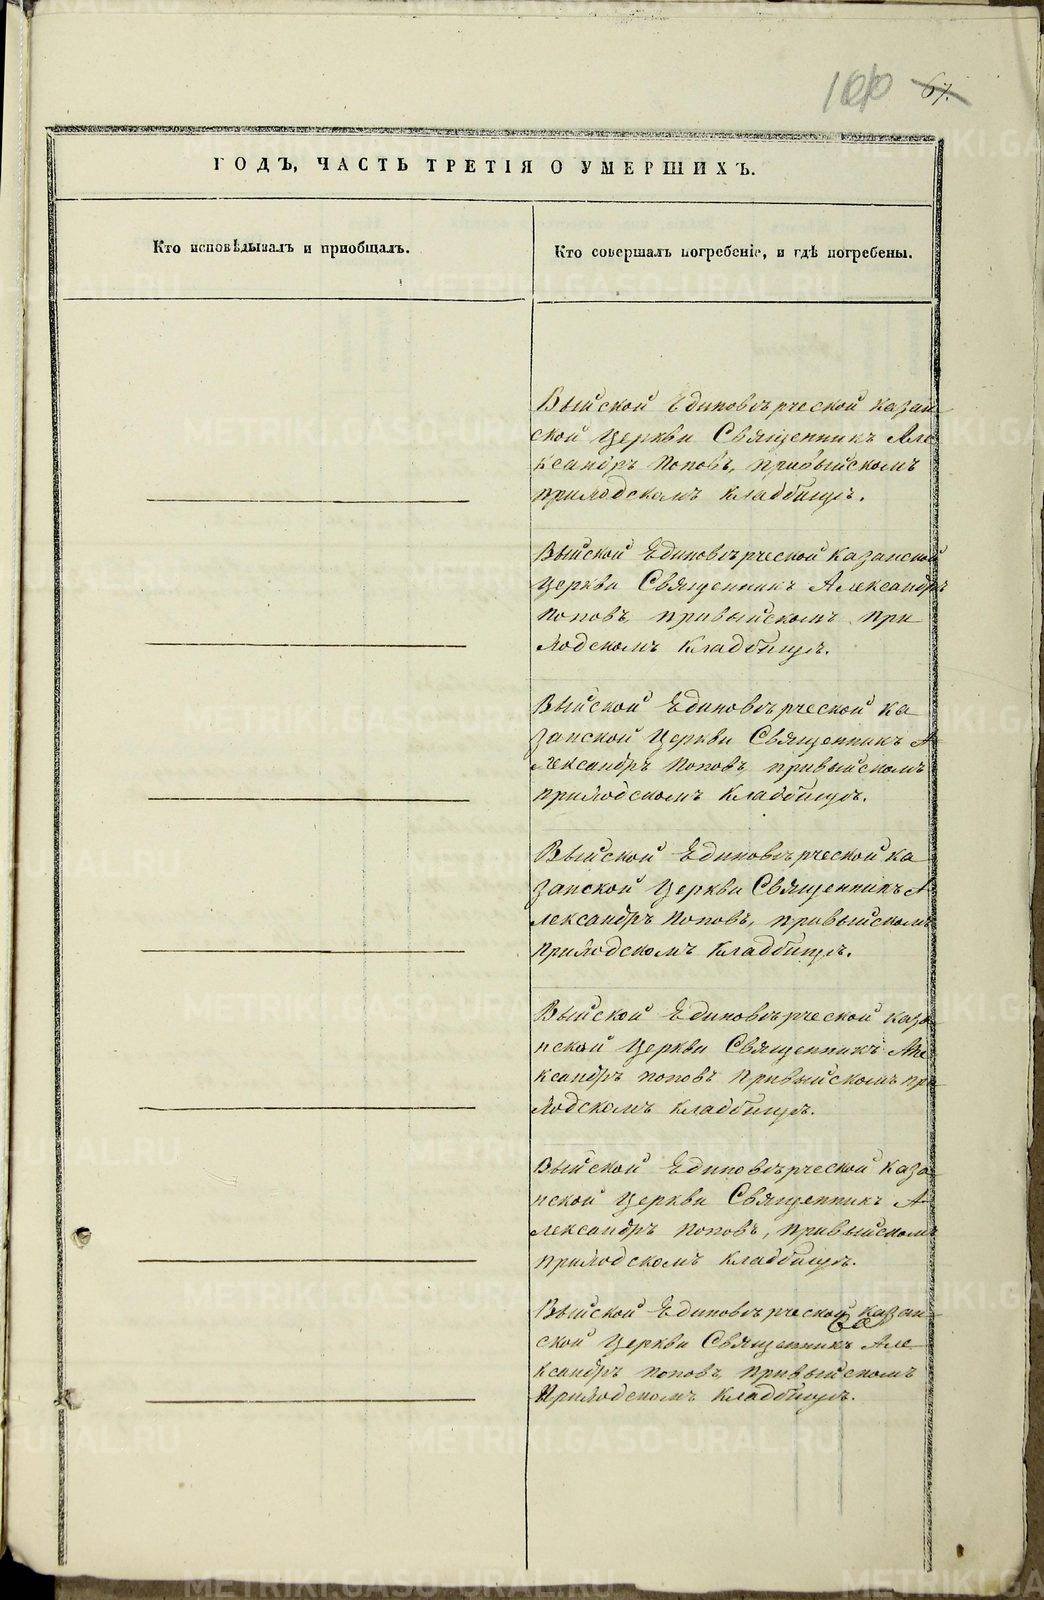 100 67.
ГОДЪ, ЧАСТЬ ТРЕТІЯ О УМЕРШИХЪ.
Кто исповѣдывалъ и приобщалъ.
Кто совершалъ погребеніе, и гдѣ погребены.
Выйской Единовѣрческой Казан
ской церкви Священникъ Але
ксандръ Поповъ, привыйскомъ
приходскомъ кладбищѣ.
Выйской Единовѣрческой Казанской
церкви Священникъ Александръ
Поповъ, привыйскомъ при
ходскомъ кладбищѣ.
Выйской Единовѣрческой Ка
занской церкви Священникъ А
лександръ Поповъ, привыйскомъ
приходскомъ кладбищѣ.
Выйской Единовѣрческой Ка
занской церкви Священникъ А
лександръ Поповъ, привыйскомъ
приходскомъ кладбищѣ.
Выйской Единовѣрческой Каза
нской церкви Священникъ Але
ксандръ Поповъ привыйскомъ при
ходскомъ кладбищѣ.
Выйской Единовѣрческой Каза
нской церкви Священникъ А
лександръ Поповъ, привыйскомъ
приходскомъ кладбищѣ.
Выйской Единовѣрческой Казан
ской церкви Священникъ Але
ксандръ Поповъ, привыйскомъ
приходскомъ кладбищѣ.
METRIKI.GASO-URAL.RU